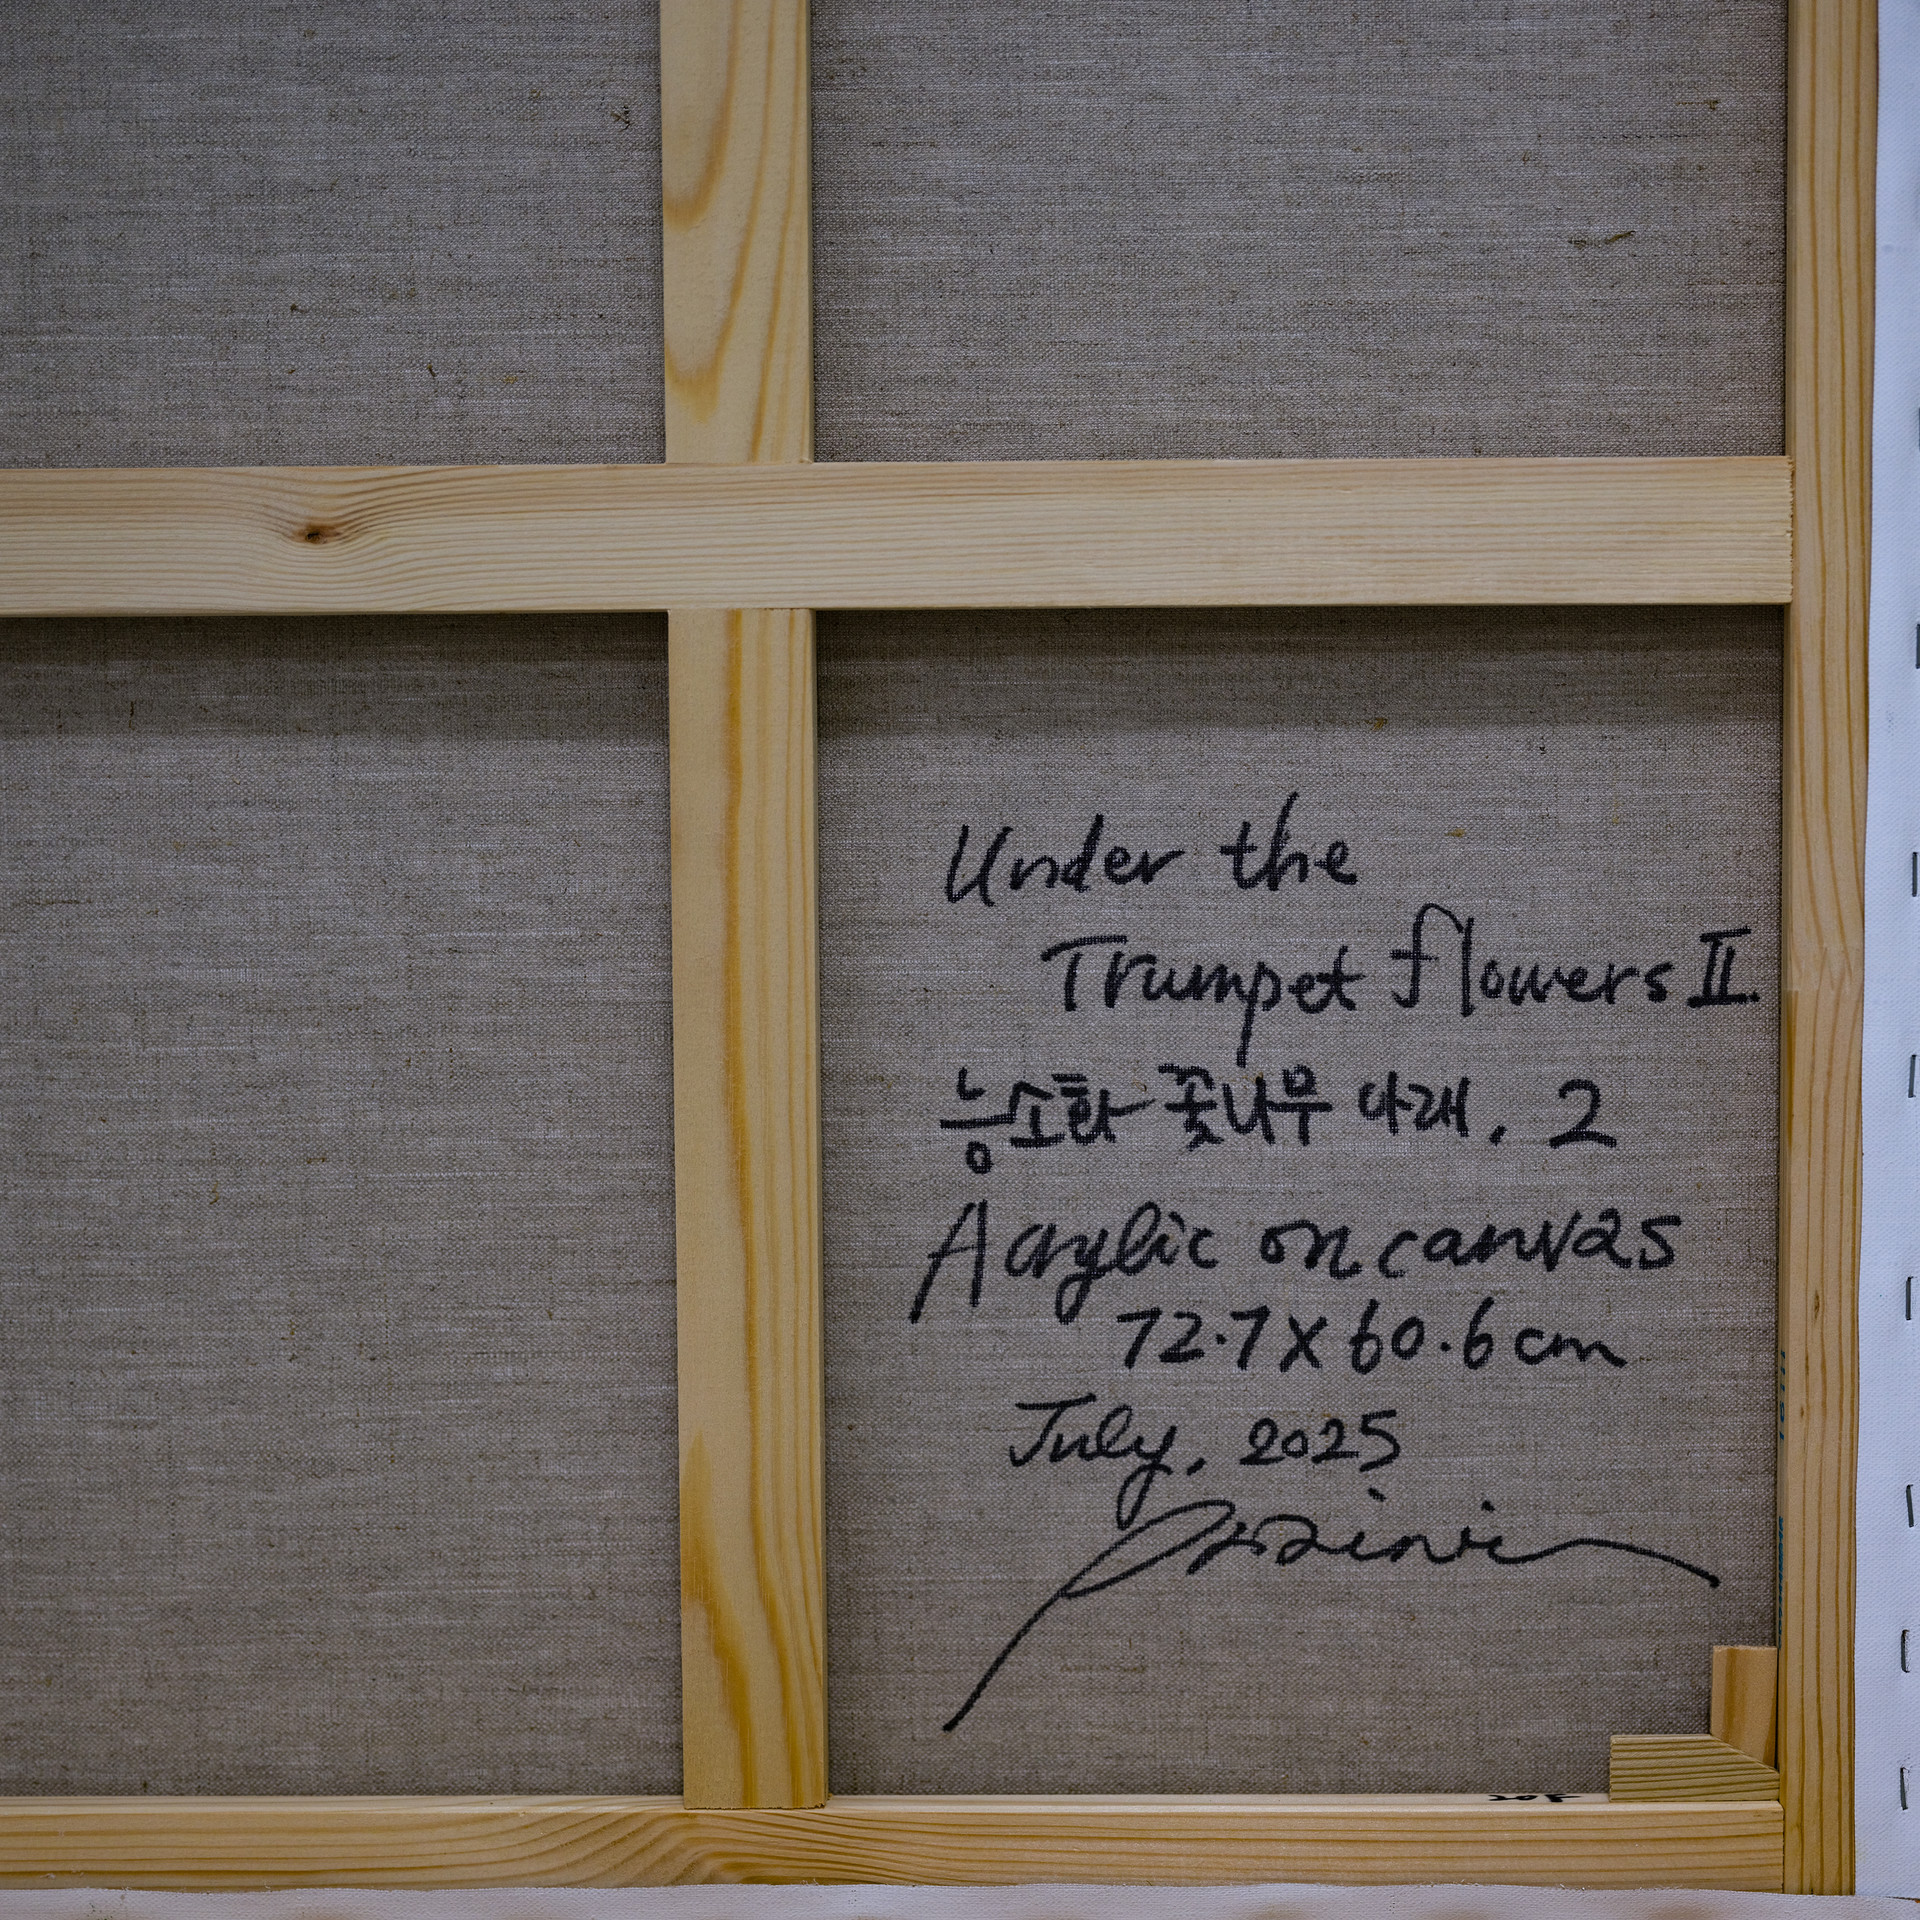 Under the
Trumpet flowers II.
능소화 꽃나무 아래. 2
Acrylic on canvas
72.7 x 60.6 cm
July, 2025